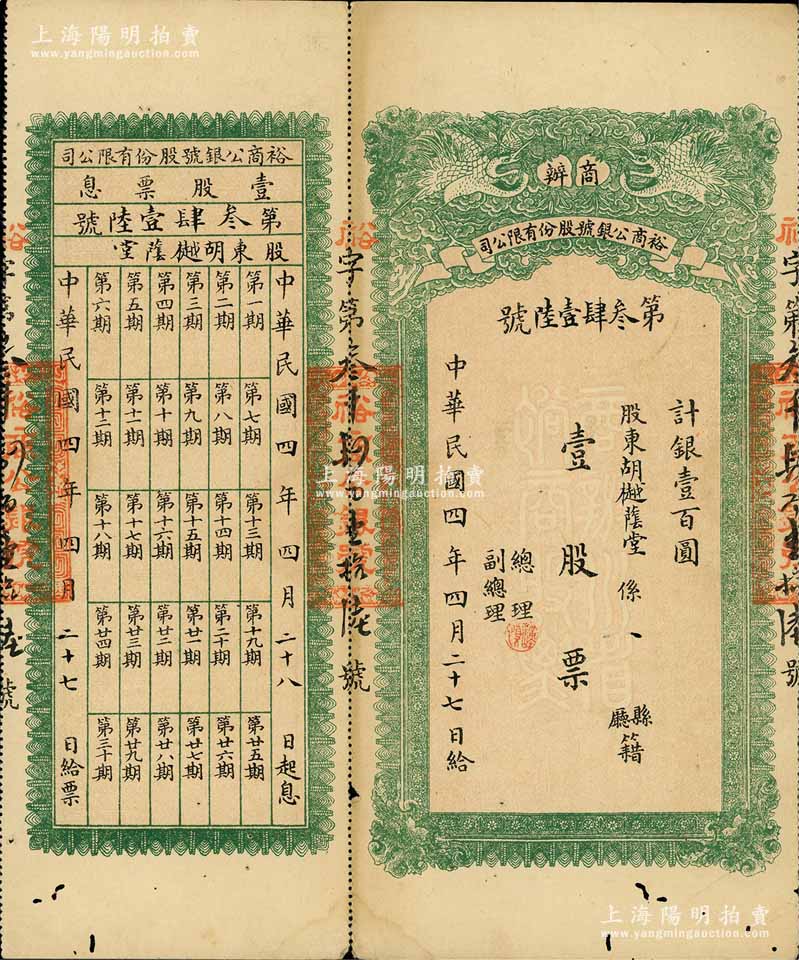 上海陽明拍賣
www.yangmingauction.com
商辦
裕商公銀號股份有限公司
第叁肆壹陸號
計銀壹百圓
股東胡樾蔭堂係
縣廳籍
壹股票
總理
副總理
中華民國四年四月二十七日給
字第叁千肆百壹拾陸號
裕商公銀號股份有限公司
壹股票息
第叁肆壹陸號
股東胡樾蔭堂
中華民國四年四月二十八日起息
第一期 第七期 第十三期 第十九期 第廿五期
第二期 第八期 第十四期 第二十期 第廿六期
第三期 第九期 第十五期 第廿一期 第廿七期
第四期 第十期 第十六期 第廿二期 第廿八期
第五期 第十一期 第十七期 第廿三期 第廿九期
第六期 第十二期 第十八期 第廿四期 第三十期
中華民國四年四月二十七日給票
上海陽明拍賣
www.yangmingauction.com
上海陽明拍賣
www.yangmingauction.com